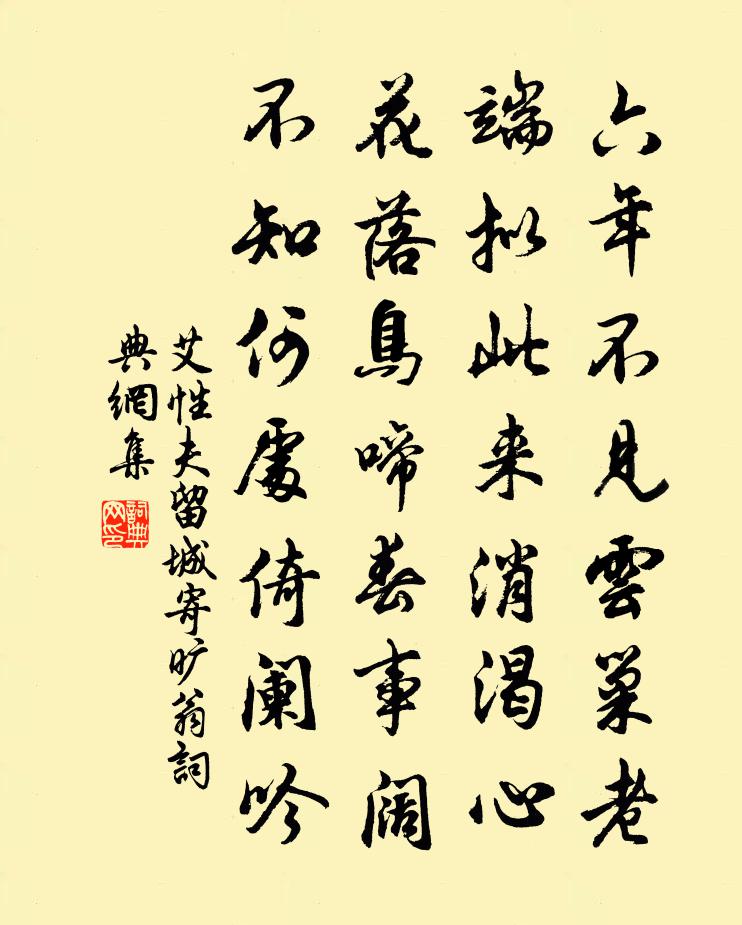 六年不見雲巢老
端拟此来消渴心
花落鳥啼春事阔
不知何處倚阑吟
艾性夫留城寄旷翁詞
典網集
詞典网印